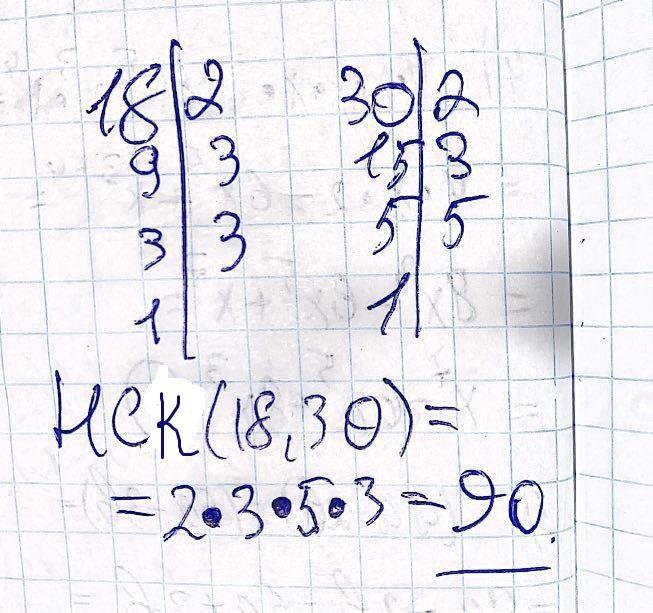 18 | 2 30 | 2
9 | 3 15 | 3
3 | 3 5 | 5
1 | 1 |
НСК(18,30)=
=2•3•5•3=90.